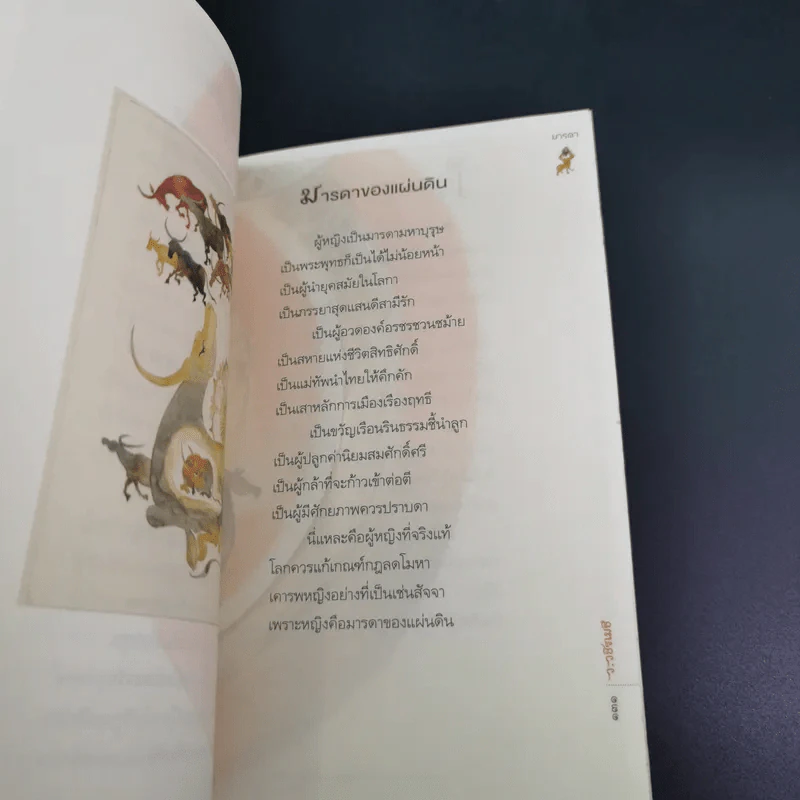 มารดา
มารดาของแผ่นดิน
ผู้หญิงเป็นมารดามหาบุรุษ
เป็นพระพุทธก็เป็นได้ไม่น้อยหน้า
เป็นผู้นำยุคสมัยในโลกา
เป็นภรรยาสุดแสนดีสามีรัก
เป็นผู้อวดองค์อรชรชวนชม้าย
เป็นสหายแห่งชีวิตสิทธิศักดิ์
เป็นแม่ทัพนำไทยให้คึกคัก
เป็นเสาหลักการเมืองเรืองฤทธี
เป็นขวัญเรือนรินธรรมชี้นำลูก
เป็นผู้ปลูกค่านิยมสมศักดิ์ศรี
เป็นผู้กล้าที่จะก้าวเข้าต่อตี
เป็นผู้มีศักยภาพควรปราบดา
นี่แหละคือผู้หญิงที่จริงแท้
โลกควรแก้เกณฑ์กฎลดโมหา
เคารพหญิงอย่างที่เป็นเช่นสัจจา
เพราะหญิงคือมารดาของแผ่นดิน
ว.วชิรเมธี